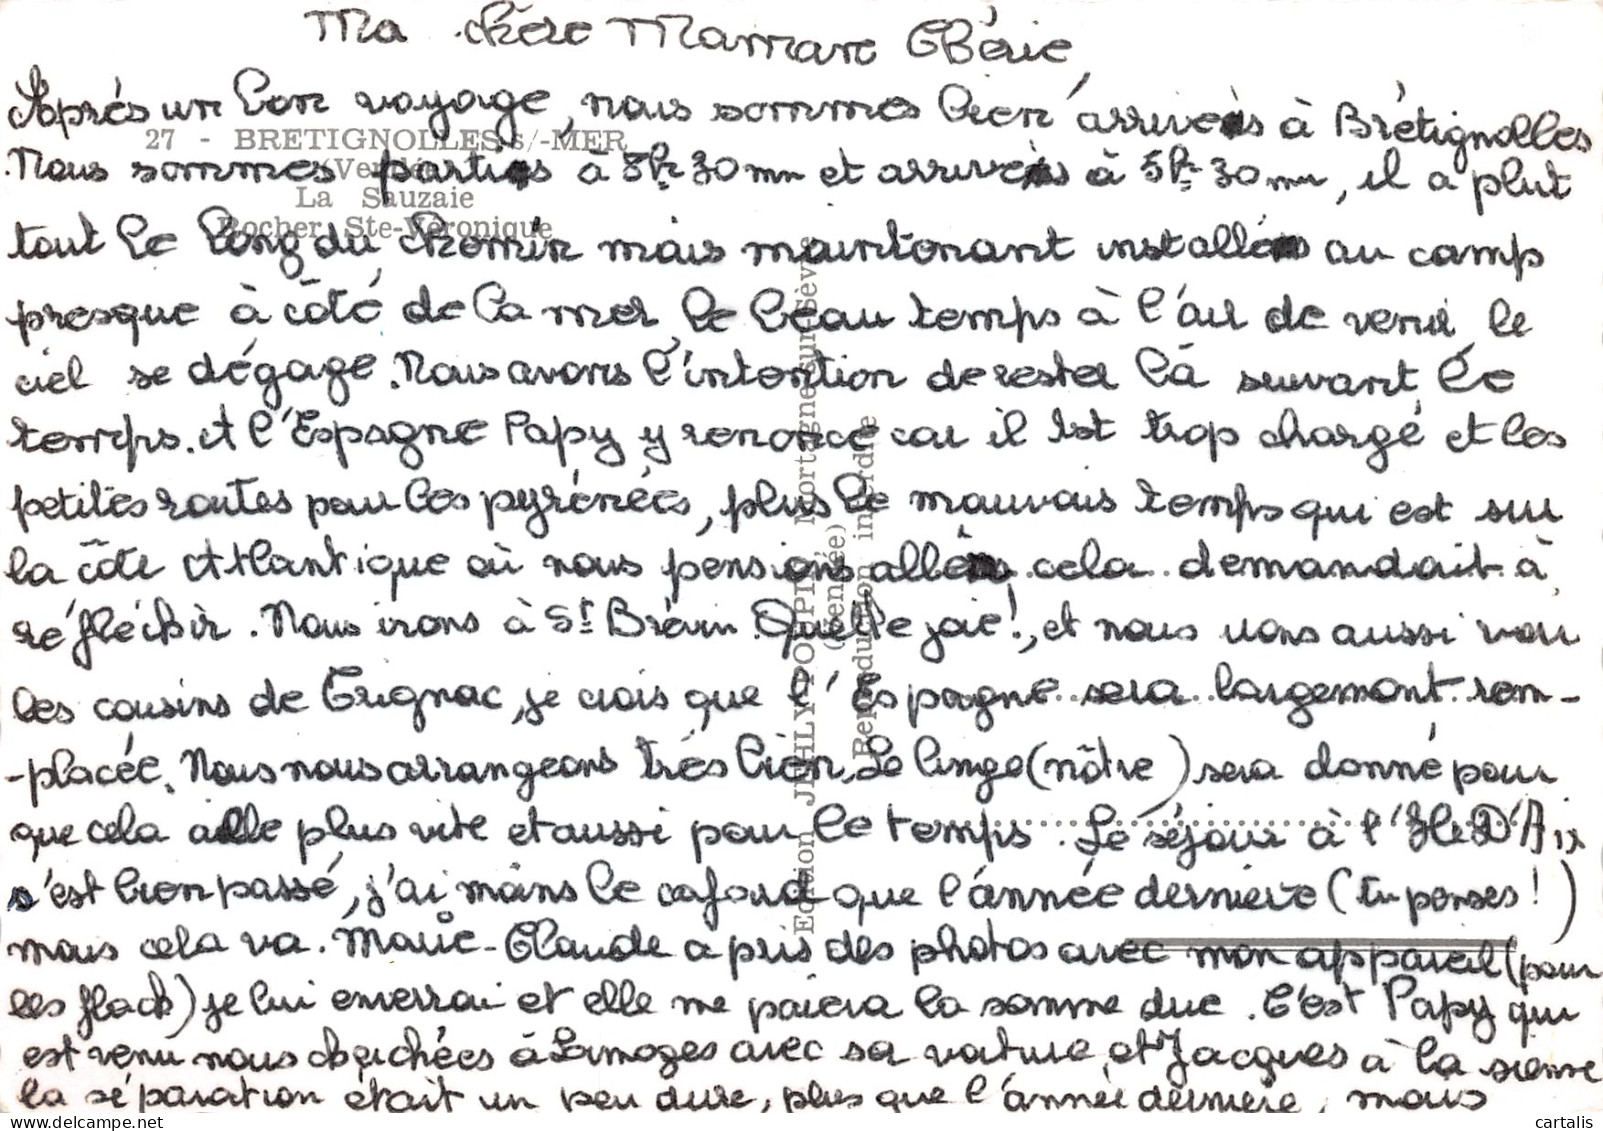 Ma chère Maman Chérie,
Après un bon voyage, nous sommes bien arrivés à Brétignolles
27 - BRETIGNOLLES s/-MER
Nous sommes partis à 8h 30 mn et arrivés à 5h 30 mn, il a plut
(Vendée)
La Sauzaie
Rocher Ste-Véronique
tout le long du chemin mais maintenant installés au camp
presque à côté de la mer, le beau temps à l'air de venir, le
ciel se dégage. Nous avons l'intention de rester là suivant le
temps. A l'Espagne Papy y renonce car il est trop chargé et les
petites routes pour les pyrénées, plus le mauvais temps qui est sur
la côte Atlantique où nous pensions aller cela demandait à
réfléchir. Nous irons à St Brévin. Quelle joie!, et nous irons aussi voir
les cousins de Trignac, je crois que l'Espagne sera largement rem-
-placée. Nous nous arrangeons très bien, Le linge (nôtre) sera donné pour
que cela aille plus vite et aussi pour le temps. Le séjour à l'Ile D'Aix
s'est bien passé, j'ai moins le cafard que l'année dernière (tu penses!)
mais cela va. Marie-Claude a pris des photos avec mon appareil (pour
les flach) je lui enverrai et elle me paiera la somme due. C'est Papy qui
est venu nous cherchées à Limoges avec sa voiture et Jacques à la sienne
la séparation était un peu dure, plus que l'année dernière, mais
Edition JEHLY-POUPIN Mortagne-sur-Sèvre
(Vendée)
Reproduction interdite
cartalis